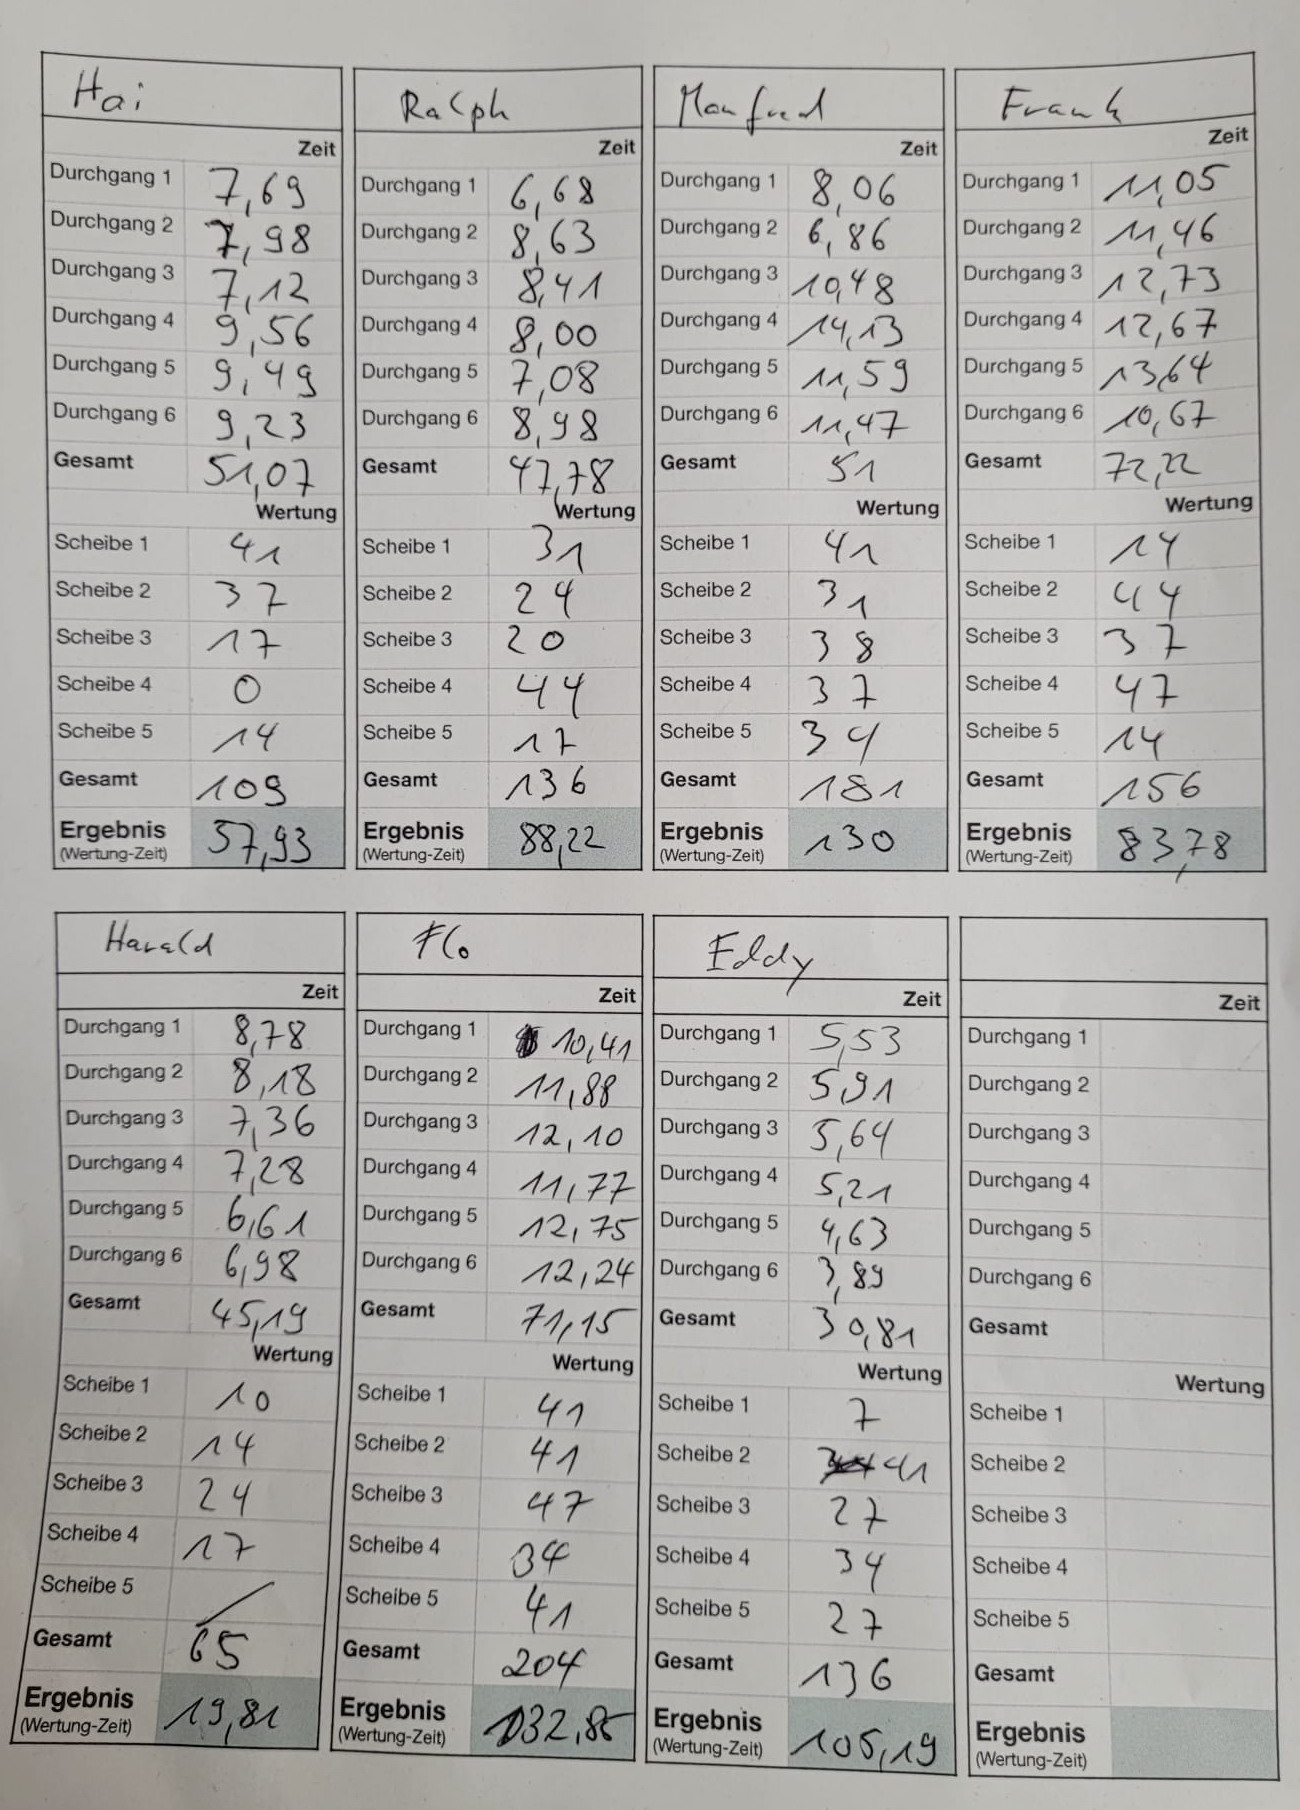 Hai
Zeit
Durchgang 1 7,69
Durchgang 2 7,98
Durchgang 3 7,12
Durchgang 4 9,56
Durchgang 5 9,49
Durchgang 6 9,23
Gesamt 51,07
Wertung
Scheibe 1 41
Scheibe 2 37
Scheibe 3 17
Scheibe 4 0
Scheibe 5 14
Gesamt 109
Ergebnis 57,93
(Wertung-Zeit)
Ralph
Zeit
Durchgang 1 6,68
Durchgang 2 8,63
Durchgang 3 8,41
Durchgang 4 8,00
Durchgang 5 7,08
Durchgang 6 8,98
Gesamt 47,78
Wertung
Scheibe 1 31
Scheibe 2 24
Scheibe 3 20
Scheibe 4 44
Scheibe 5 17
Gesamt 136
Ergebnis 88,22
(Wertung-Zeit)
Manfred
Zeit
Durchgang 1 8,06
Durchgang 2 6,86
Durchgang 3 10,48
Durchgang 4 14,13
Durchgang 5 11,59
Durchgang 6 11,47
Gesamt 51
Wertung
Scheibe 1 41
Scheibe 2 31
Scheibe 3 38
Scheibe 4 37
Scheibe 5 34
Gesamt 181
Ergebnis 130
(Wertung-Zeit)
Frank
Zeit
Durchgang 1 11,05
Durchgang 2 11,46
Durchgang 3 12,73
Durchgang 4 12,67
Durchgang 5 13,64
Durchgang 6 10,67
Gesamt 72,22
Wertung
Scheibe 1 14
Scheibe 2 44
Scheibe 3 37
Scheibe 4 47
Scheibe 5 14
Gesamt 156
Ergebnis 83,78
(Wertung-Zeit)
Harald
Zeit
Durchgang 1 8,78
Durchgang 2 8,18
Durchgang 3 7,36
Durchgang 4 7,28
Durchgang 5 6,61
Durchgang 6 6,98
Gesamt 45,19
Wertung
Scheibe 1 10
Scheibe 2 14
Scheibe 3 24
Scheibe 4 17
Scheibe 5 /
Gesamt 65
Ergebnis 19,81
(Wertung-Zeit)
Flo
Zeit
Durchgang 1 10,41
Durchgang 2 11,88
Durchgang 3 12,10
Durchgang 4 11,77
Durchgang 5 12,75
Durchgang 6 12,24
Gesamt 71,15
Wertung
Scheibe 1 41
Scheibe 2 41
Scheibe 3 47
Scheibe 4 34
Scheibe 5 41
Gesamt 204
Ergebnis 132,85
(Wertung-Zeit)
Eddy
Zeit
Durchgang 1 5,53
Durchgang 2 5,91
Durchgang 3 5,64
Durchgang 4 5,21
Durchgang 5 4,63
Durchgang 6 3,89
Gesamt 30,81
Wertung
Scheibe 1 7
Scheibe 2 41
Scheibe 3 27
Scheibe 4 34
Scheibe 5 27
Gesamt 136
Ergebnis 105,19
(Wertung-Zeit)
Zeit
Durchgang 1
Durchgang 2
Durchgang 3
Durchgang 4
Durchgang 5
Durchgang 6
Gesamt
Wertung
Scheibe 1
Scheibe 2
Scheibe 3
Scheibe 4
Scheibe 5
Gesamt
Ergebnis
(Wertung-Zeit)